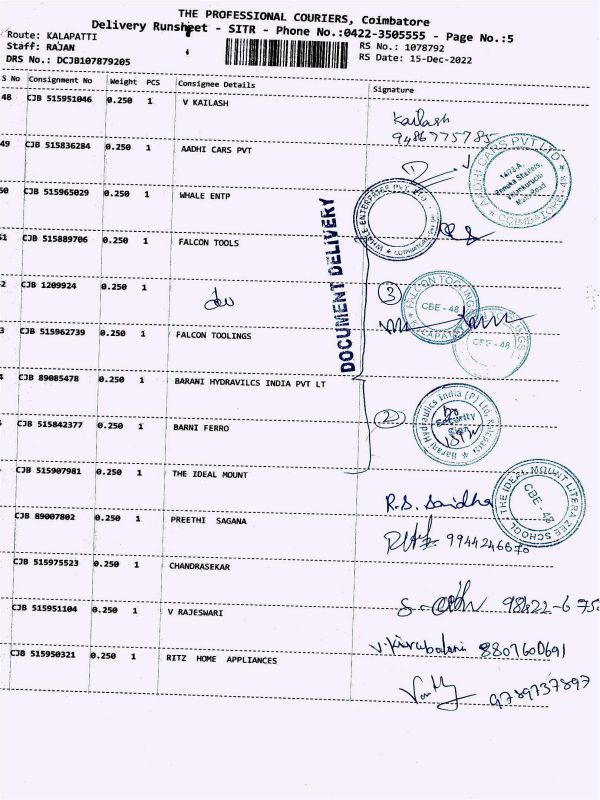 THE PROFESSIONAL COURIERS, Coimbatore
Delivery Runsheet - SITR - Phone No.:0422-3505555 - Page No.:5
Route: KALAPATTI
Staff: RAJAN
DRS No.: DCJB107879205
RS No.: 1078792
RS Date: 15-Dec-2022
S No Consignment No Weight PCS Consignee Details Signature
48 CJB 515951046 0.250 1 V KAILASH
Kailash
9486775785
49 CJB 515836284 0.250 1 AADHI CARS PVT
AADHI CARS PVT LTD
COIMBATORE-48
50 CJB 515965029 0.250 1 WHALE ENTP
WHALE ENTERPRISES PVT. LTD.
51 CJB 515889706 0.250 1 FALCON TOOLS
DOCUMENT DELIVERY
2 CJB 1209924 0.250 1 do
3
FALCON TOOLINGS
CBE - 48
KALAPATTI
3 CJB 515962739 0.250 1 FALCON TOOLINGS
CBE - 48
4 CJB 89085478 0.250 1 BARANI HYDRAVILCS INDIA PVT LT
2
Barani Hydraulics India (P) Ltd,
Security
CJB 515842377 0.250 1 BARNI FERRO
CJB 515907981 0.250 1 THE IDEAL MOUNT
R.S. Sandha
THE IDEAL MOUNT LITERA ZEE SCHOOL
CBE - 48
CJB 89007802 0.250 1 PREETHI SAGANA
9944246670
CJB 515975523 0.250 1 CHANDRASEKAR
98422-6758
CJB 515951104 0.250 1 V RAJESWARI
8807600691
CJB 515950321 0.250 1 RITZ HOME APPLIANCES
9789737897